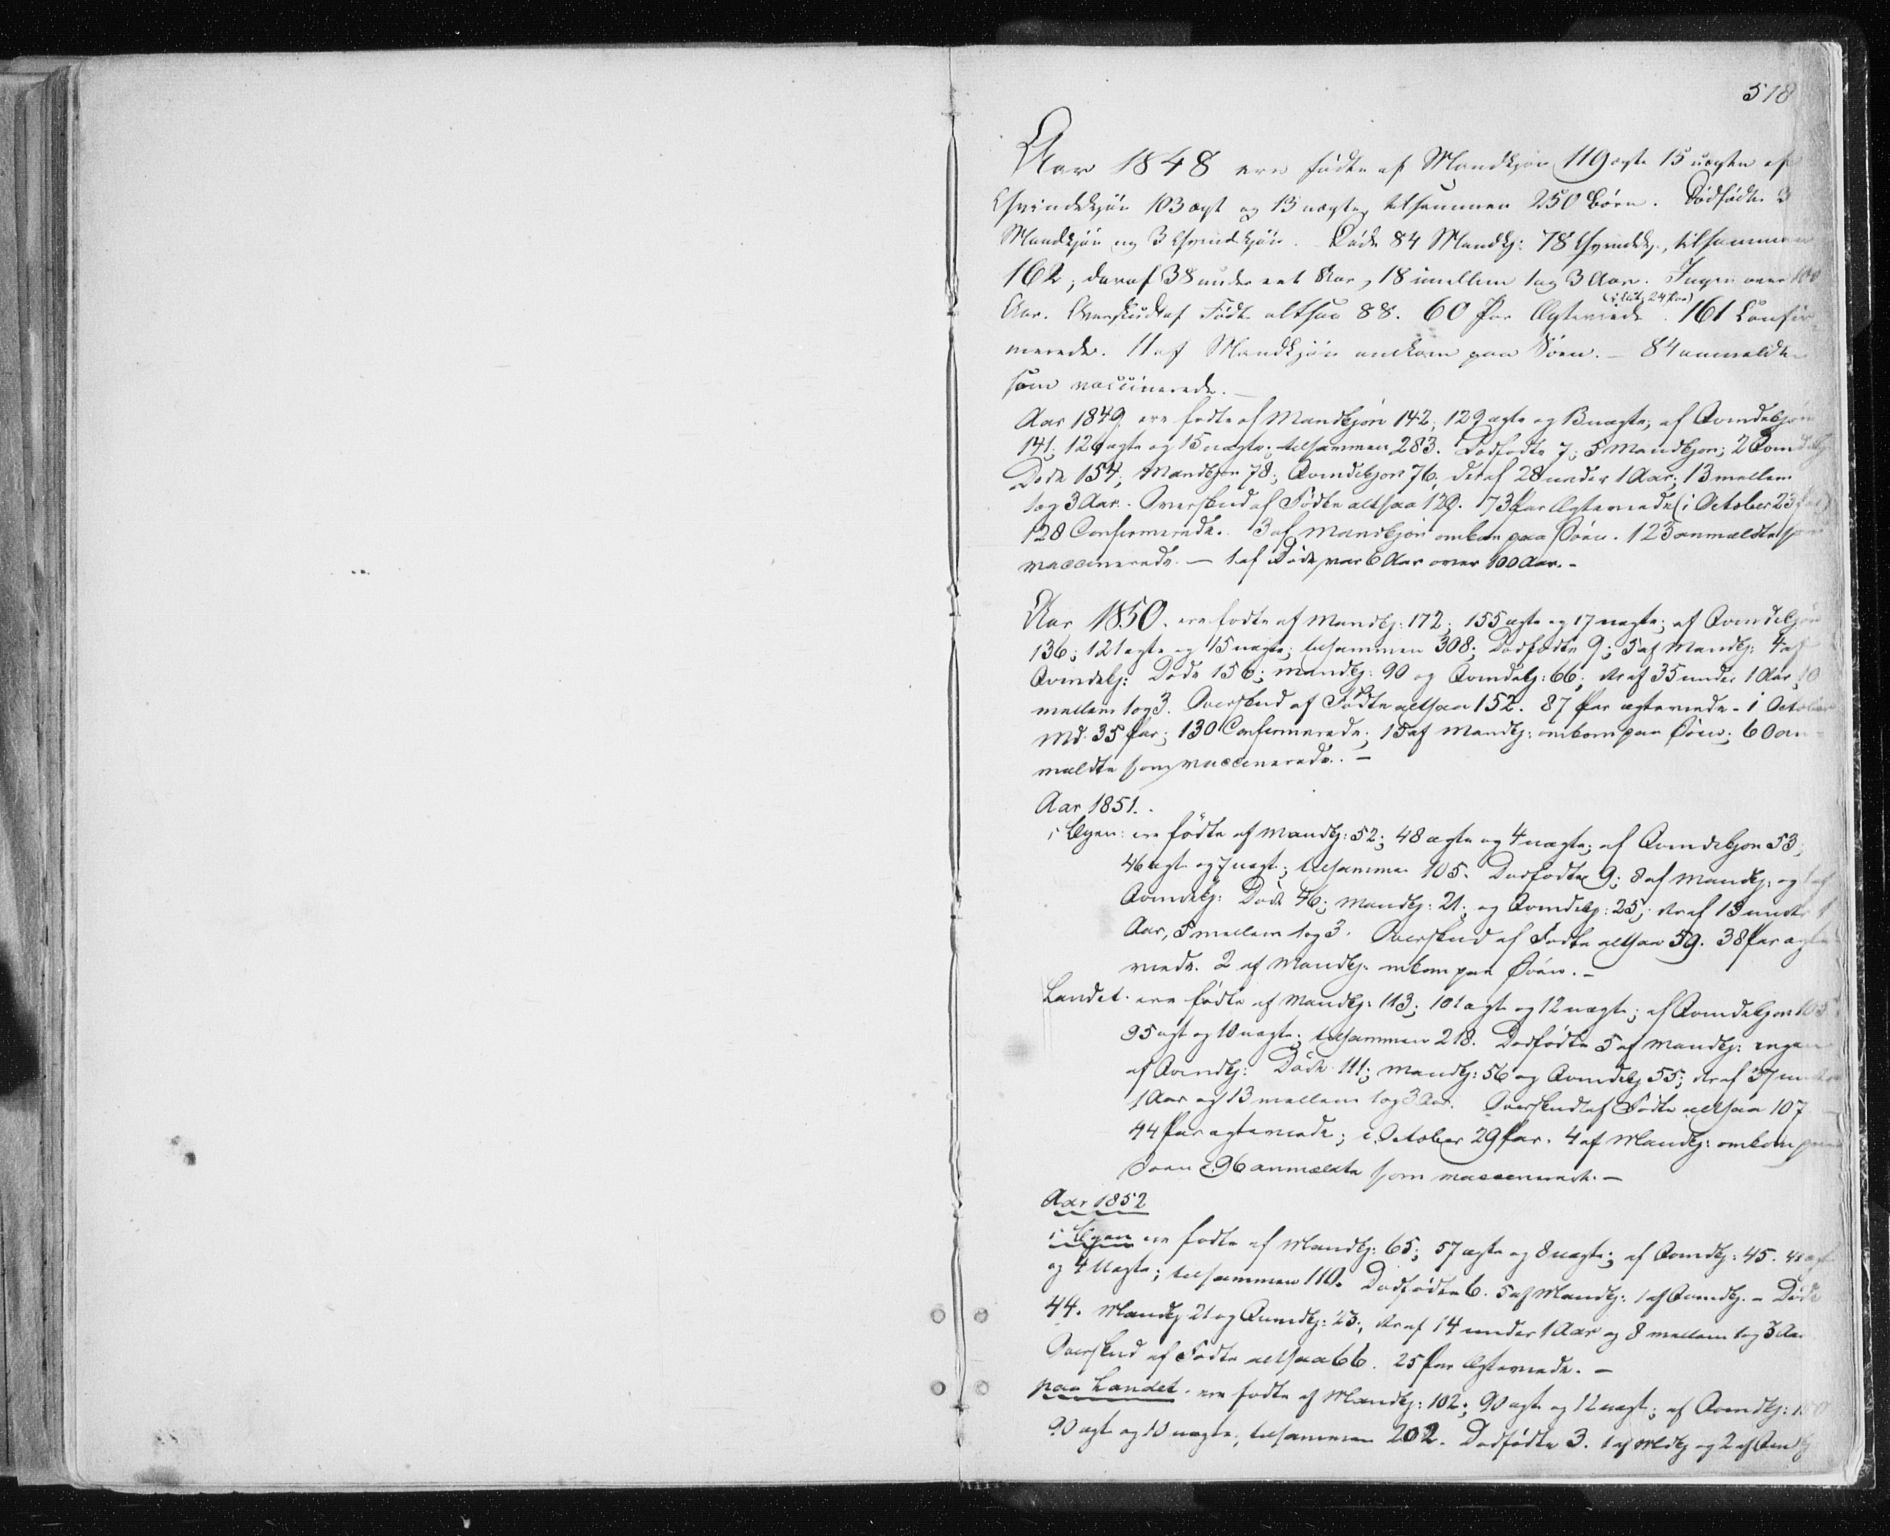 518
Aar 1848 ere fødte af Mandkjøn 119 ægte 15 uægte af
Qvindekjøn 103 ægt og 13 uægte, tilsammen 250 Børn. Dødfødte 3
Mandkjøn og 3 Qvindekjøn. Døde 84 Mandkj: 78 Qvindekj., tilsammen
162, deraf 38 under eet Aar, 18 imellem 1 og 3 Aar. Ingen over 100
(i Oct: 24 Par)
Aar. Overskud af Fødte altsaa 88. 60 Par Ægteviede. 161 Confir-
merede. 11 af Mandkjøn omkom paa Søen. – 84 anmeldte
som vaccinerede. –
Aar 1849 ere fødte af Mandkjøn 142, 129 ægte og 13 uægte, af Qvindekjøn
141; 126 ægte og 15 uægte; tilsammen 283. Dødfødte 7; 5 Mandkjøn; 2 Qvindekj
Døde 154; Mandkjøn 78; Qvindekjøn 76; deraf 28 under 1 Aar; 13 mellem
1 og 3 Aar. Overskud af Fødte altsaa 129. 73 Par Ægteviede (i October 23 Par)
128 Confirmerede. 3 af Mandkjøn omkom paa Søen. 123 anmældte som
vaccinerede. – 1 af Døde, var 6 Aar over 100 Aar. –
Aar 1850. ere fødte af Mandkj: 172; 155 ægte og 17 uægte; af Qvindekjøn
136; 121 ægte og 15 uægte; tilsammen 308; Dødfødte 9; 5 af Mandkj: 4 af
Qvindekj: Døde 156; Mandkj: 90 og Qvindekj: 66; deraf 35 under 1 Aar, 10
mellem 1 og 3. Overskud af Fødte altsaa 152. 87 Par ægteviede - i October
Md. 35 Par; 130 Confirmerede; 15 af Mandkj: omkom paa Søen; 60 an-
meldte som vaccinerede. –
Aar 1851.
i Byen: ere fødte af Mandkj: 52; 48 ægte og 4 uægte; af Qvindekjøn 53;
46 ægte og 7 uægt; tilsammen 105. Dødfødte 9; 8 af Mandkj: og 1 af
Qvindekj: Døde 46; Mandkj: 21; og Qvindekj: 25; deraf 13 under 1
Aar, 5 mellem 1 og 3. Overskud af Fødte altsaa 59. 38 Par ægte-
viede. 2 af Mandkj: omkom paa Søen. –
Landet. ere fødte af Mandkj: 113; 101 ægt og 12 uægte; af Qvindekjøn 105
95 ægt og 10 uægte; tilsammen 218. Dødfødte 5 af Mandkj: ingen
af Qvindkj: Døde 111; Mandkj: 56 og Qvindekj 55; deraf 37 under
1 Aar og 13 mellem 1 og 3 Aar. Overskud af Fødte altsaa 107
44 Par ægteviede; i October 29 Par. 4 af Mandkj: omkom paa
Søen. 96 anmældte som vaccinerede. –
Aar 1852
i Byen ere fødte af Mandkj: 65; 57 ægte og 8 uægte; af Qvindkj: 45. 41 ægt
og 4 Uægte; tilsammen 110. Dødfødte 6. 5 af Mandkj: 1 af Qvindkj. – Døde
44. Mandkj 21 og Qvindkj: 23; deraf 14 under 1 Aar og 8 mellem 1 og 3 Aar
Overskud af Fødte altsaa 66. 25 Par Ægteviede. –
paa Landet. ere fødte af Mandkj: 102; 90 ægte og 12 uægt; af Qvindkj: 100
90 ægt og 10 uægte; tilsammen 202. Dødfødte 3. 1 af Mdkj og 2 af Qvindkj